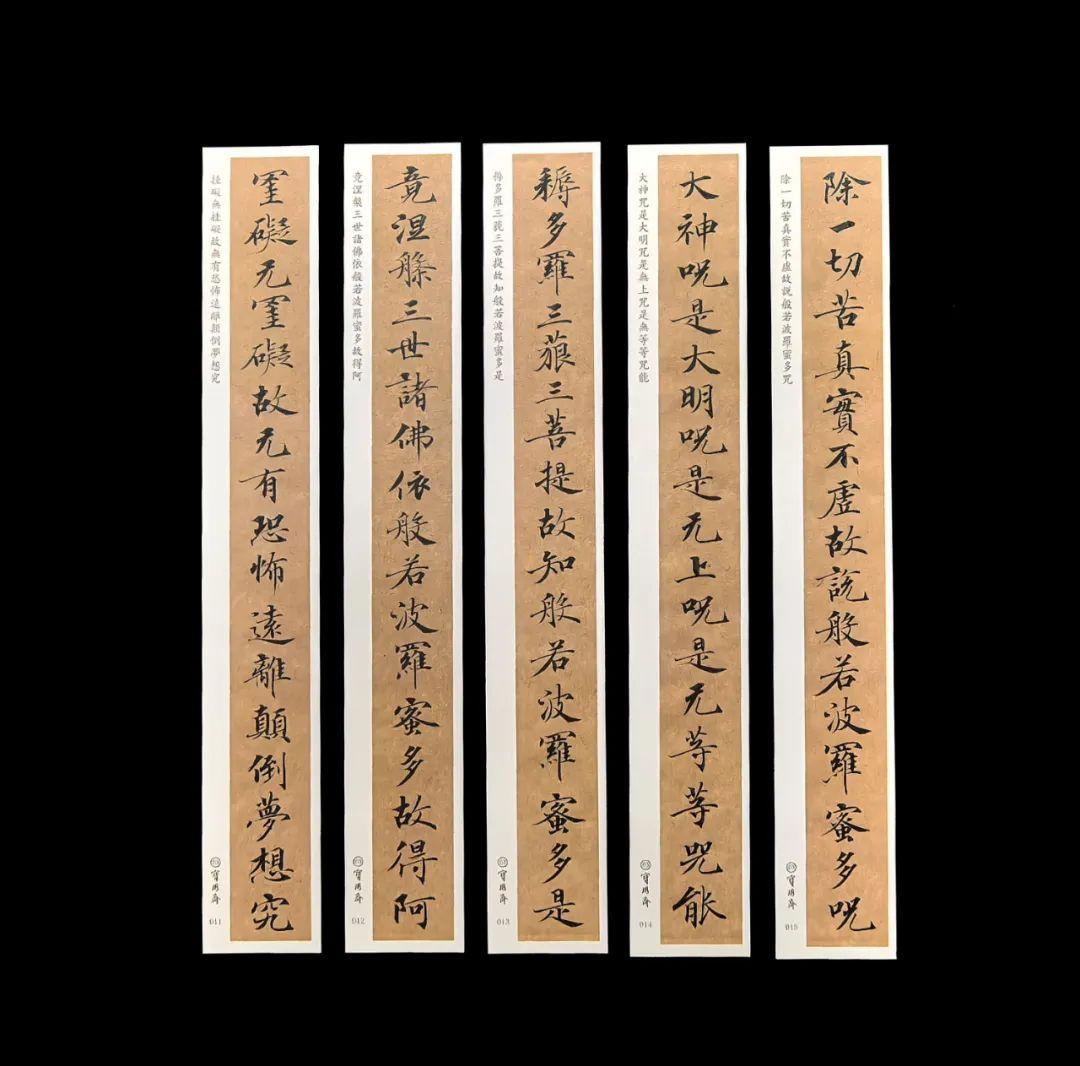 挂礙無挂礙故無有恐怖遠離顛倒夢想究
罣礙无罣礙故无有恐怖遠離顛倒夢想究
011
竟涅槃三世諸佛依般若波羅蜜多故得阿
竟涅槃三世諸佛依般若波羅蜜多故得阿
012
耨多羅三藐三菩提故知般若波羅蜜多是
耨多羅三藐三菩提故知般若波羅蜜多是
013
大神咒是大明咒是無上咒是無等等咒能
大神呪是大明呪是无上呪是无等等咒能
014
除一切苦真實不虛故説般若波羅蜜多咒
除一切苦真實不虛故説般若波羅蜜多呪
015